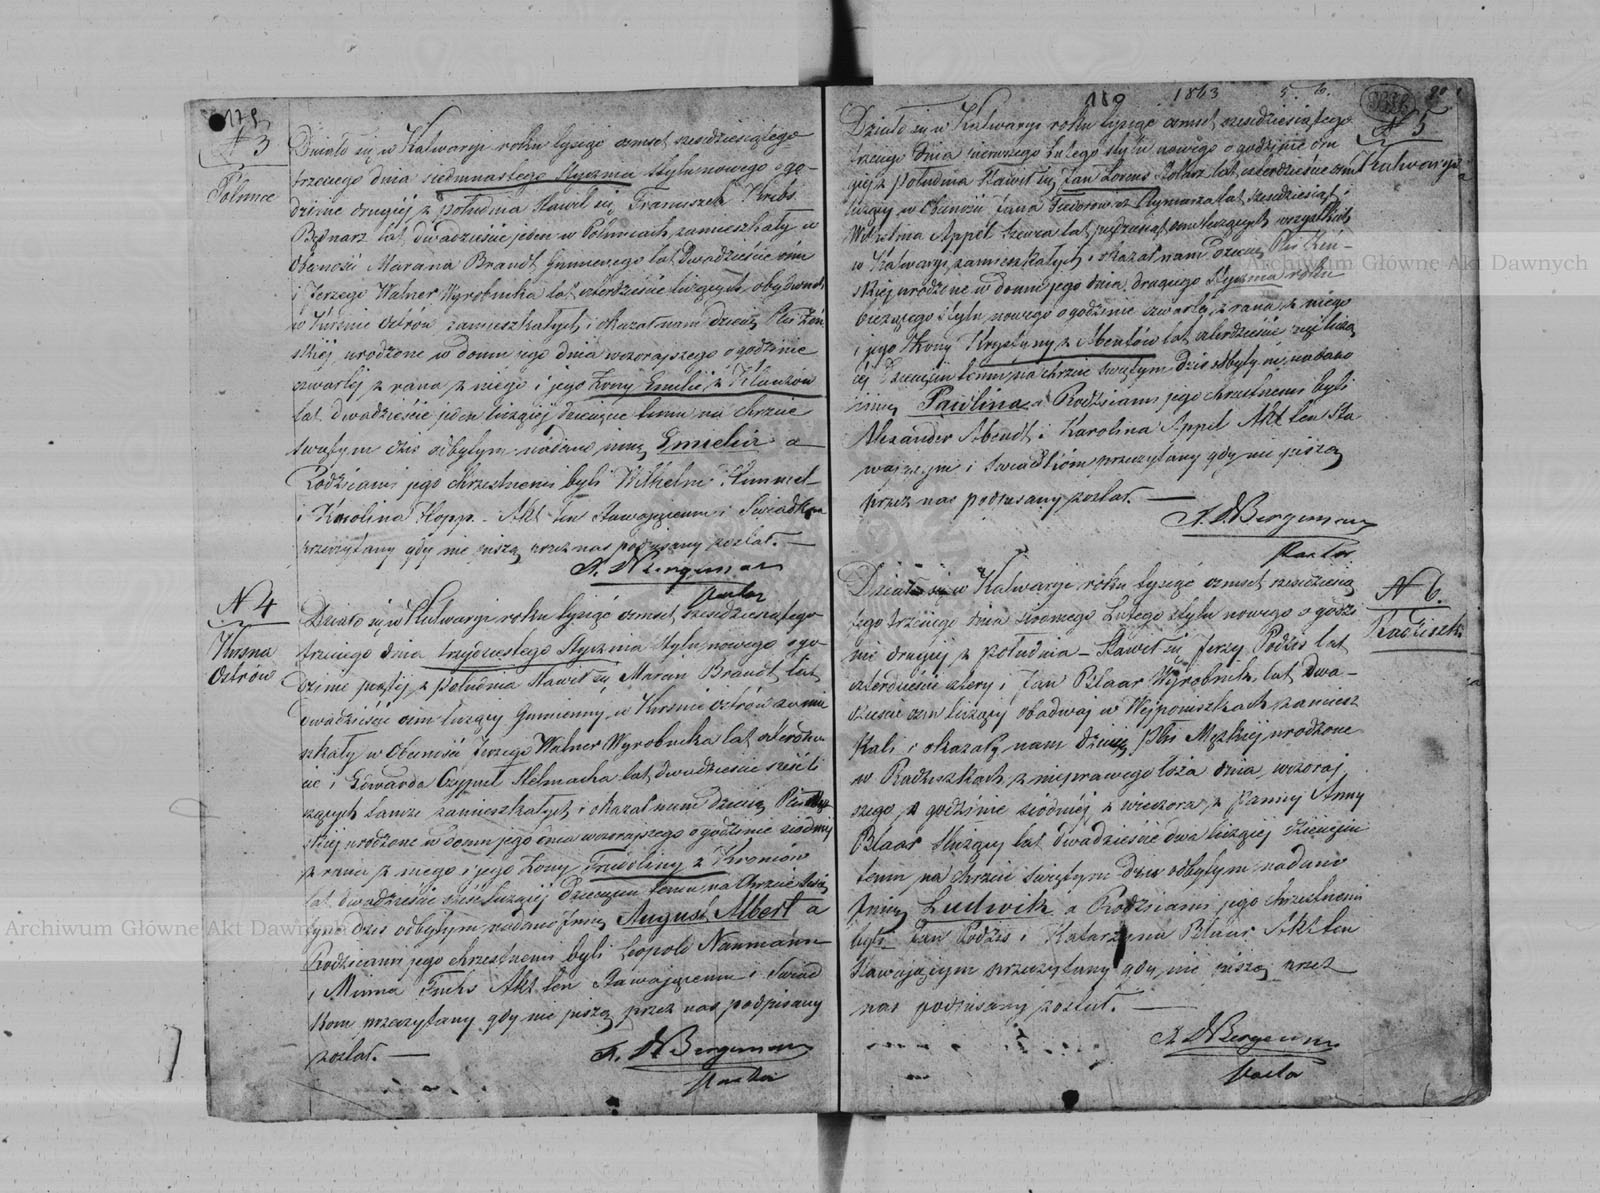 178
N 3
Połunce
Działo się w Kalwaryi roku tysiąc ośmset sześdziesiątego
trzeciego dnia siedmnastego Stycznia stylu nowego o go-
dzinie drugiéj z południa Stawił się Franciszek Kribs
Bednarz lat dwadzieście jeden w Połuncach zamieszkały w
obecności Marana Brandt Gumiennego lat dwadzieście ośm
i Jerzego Walner Wyrobnika lat czterdzieście liczących obydwóch
w Kirsnie Ostrów zamieszkałych i okazał nam dziecię Płci Żeń
skiéj urodzone w domu jego dnia wczorajszego o godzinie
czwartéj z rana z niego i jego Żony Emilii z
lat dwadzieście jeden liczącéj dziecięciu temu na chrzcie
świętym dziś odbytym nadano imię Emielia a
Rodzicami jego chrzestnemi byli Wilhelm Kimmel
i Karolina Hopp. Akt ten stawającemu i Świadkom
przeczytany gdy nie piszą przez nas podpisany został. —
Bergeman
Pastor
N 4
Kirsna
Ostrów
Działo się w Kalwaryi roku tysiąc ośmset sześdziesiątego
trzeciego dnia trzydziestego Stycznia stylu nowego o go-
dzinie piątéj z południa Stawił się Maran Brandt lat
dwadzieście ośm liczący Gumienny, w Kirsnie Ostrów zamie
szkały w obecności Jerzego Walner Wyrobnika lat czterdzie
ście i Edwarda Stelmacha lat dwadzieście sześć li
czących tamże zamieszkałych i okazał nam dziecię Płci Męz
skiéj urodzone w domu jego dnia wczorajszego o godzinie siódméj
z rana z niego i jego Żony Fridoliny z Kroniów
lat dwadzieście sześć liczącéj Dziecięciu temu na Chrzcie Świę
tym dziś odbytym nadano Imię August Albert a
Rodzicami jego chrzestnemi byli Leopold Naumann
i Minna Fuchs Akt ten Stawającemu i Świad
kom przeczytany gdy nie piszą przez nas podpisany
został. —
Bergeman
Pastor
180 1863 5. 6.
N 5
Kalwarya
Działo się w Kalwaryi roku tysiąc ośmset sześdziesiątego
trzeciego dnia pierwszego Lutego stylu nowego o godzinie dru
giéj z południa Stawił się Jan Lorens Stolarz lat czterdzieście ośm
liczący w obecności Jana Teodorowicz Rymarza lat sześdziesiąt i
Wilhelma Appel Szewca lat pięćdziesiąt ośm liczących wszystkich
w Kalwaryi zamieszkałych i okazał nam dziecię Płci Żeń-
skiéj urodzone w domu jego dnia drugiego Stycznia roku
bieżącego Stylu nowego o godzinie czwartéj z rana z niego
i jego Żony Krystyny z Abentów lat czterdzieście liczą
céj Dziecięciu temu na chrzcie świętym dziś odbytym nadano
imię Paulina a Rodzicami jego chrzestnemi byli
Alexander Abendt i Karolina Appel Akt ten Sta
wającym i Świadkiom przeczytany gdy nie piszą
przez nas podpisany został. —
Bergeman
Pastor
N 6.
Radziszki
Działo się w Kalwaryi roku tysiąc ośmset sześdziesią
tego trzeciego dnia siódmego Lutego stylu nowego o godzi
nie drugiéj z południa — Stawił się Jerzy Podzis lat
czterdzieście cztery i Jan Blaar Wyrobnik, lat dwa-
dzieście ośm liczący obadwaj w Wejponiszkach zamiesz
kali i okazały nam dziecię Płci Męzkiéj urodzone
w Radziszkach z nieprawego łoża dnia wczoraj
szego o godzinie siódméj z wieczora z Panny Anny
Blaar Służącej lat dwadzieście dwa liczącéj Dziecięciu
temu na chrzcie świętym dziś odbytym nadano
Imię Ludwik a Rodzicami jego chrzestnemi
byli Jan Podzis i Katarzyna Blaar Akt ten
Stawającym przeczytany gdy nie piszą przez
nas podpisany został. —
Bergeman
Pastor
Archiwum Główne Akt Dawnych
Archiwum Główne Akt Dawnych